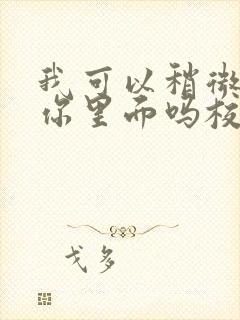 我可以稍微
你里而吗板
戈多